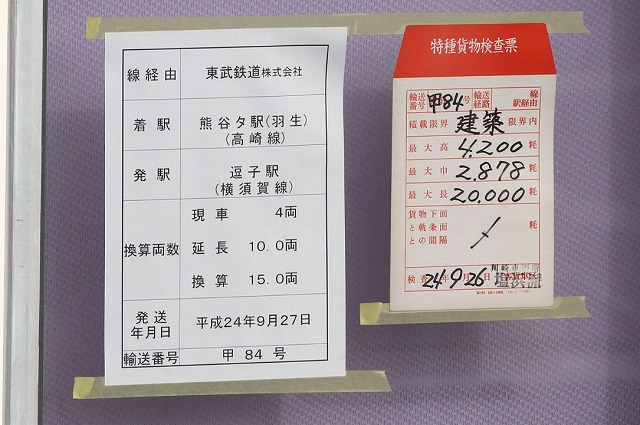 線経由 東武鉄道株式会社
着駅 熊谷タ駅(羽生)
(高崎線)
発駅 逗子駅
(横須賀線)
換算両数 現車 4両
延長 10.0両
換算 15.0両
発送年月日 平成24年9月27日
輸送番号 甲 84 号
特種貨物検査票
輸送番号 甲84号 輸送経路 線駅経由
積載限界 建築 限界内
最大高 4.200 粍
最大巾 2.878 粍
最大長 20.000 粍
貨物下面
と軌条面 粍
との間隔
検査 24年9月26
塩浜派